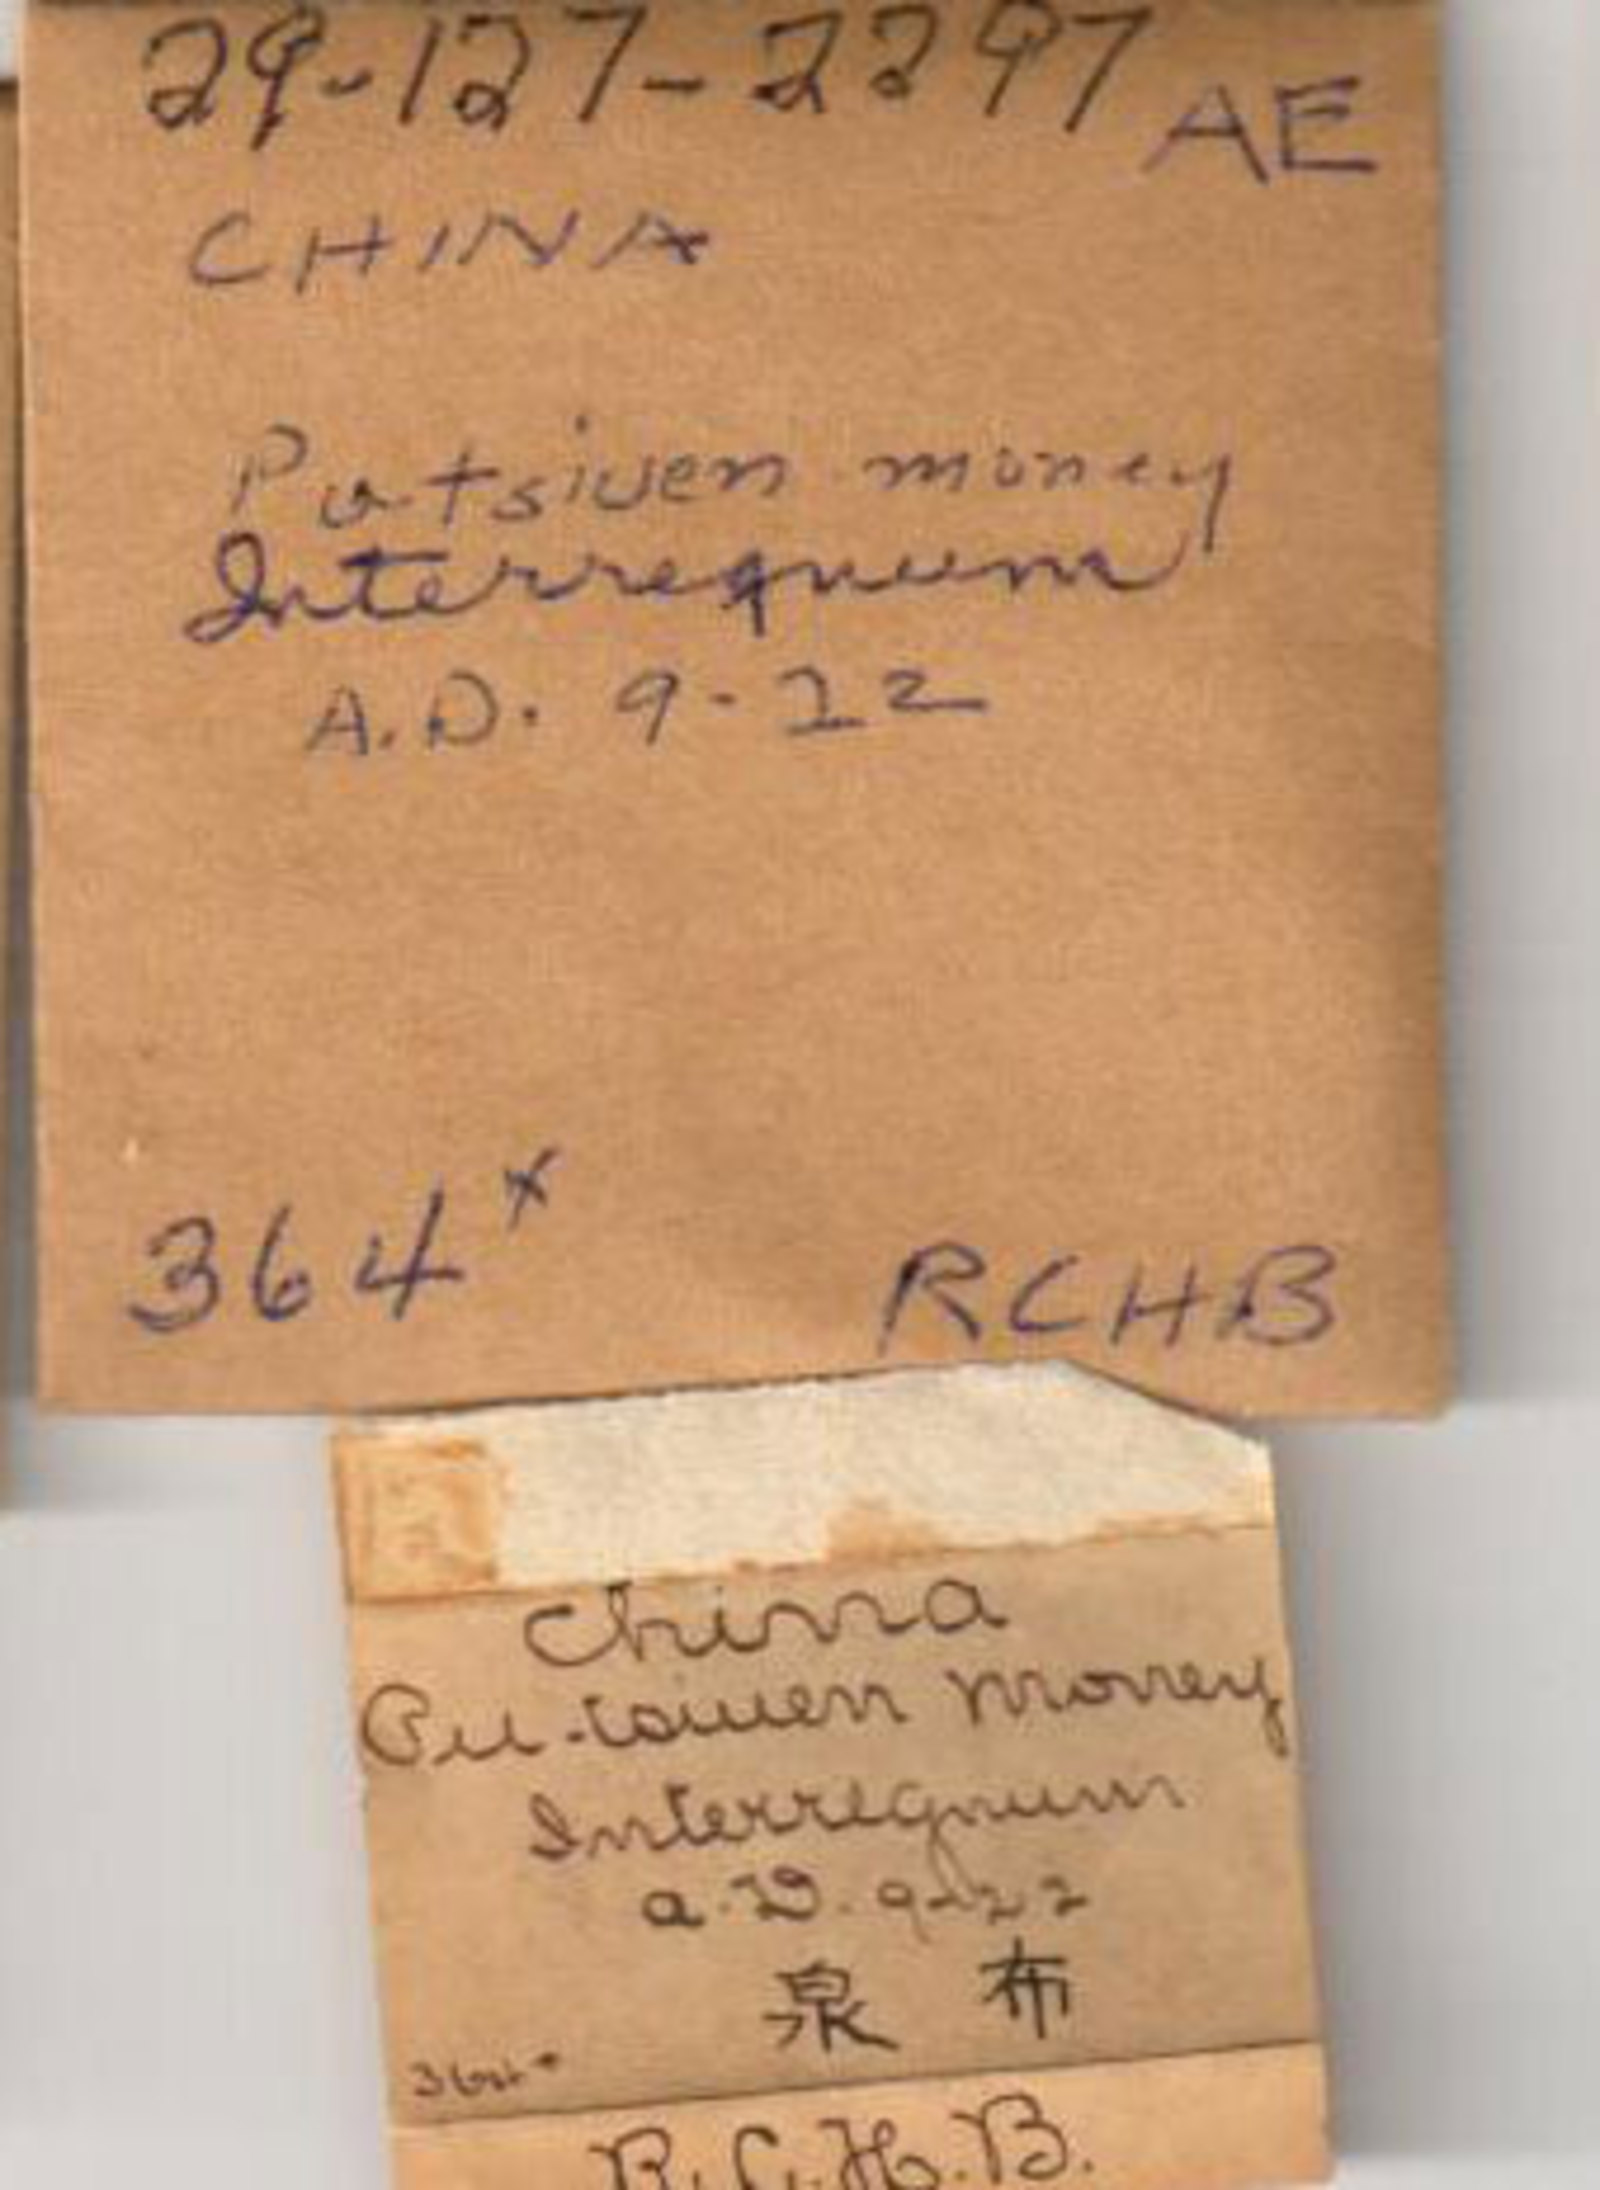 29-127-2297 AE
CHINA
Putsiuen money
Interregnum
A.D. 9-22
364*
RCHB
China
Pu-tsiuen money
Interregnum
A.D. 9-22
泉 布
364*
R.C.H.B.